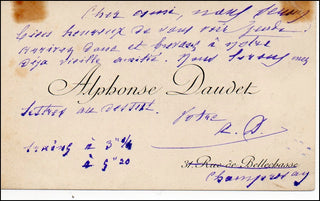 Cher ami, nous serons
bien heureux de vous voir Jeudi.
Arrivez donc et buvons à notre
déjà vieille amitié. Nous lirons mes
Alphonse Daudet
lettres au dessert.
Votre
A. D
trains à 3h
à 5h 20
31 Rue de Bellechasse
Champrosay